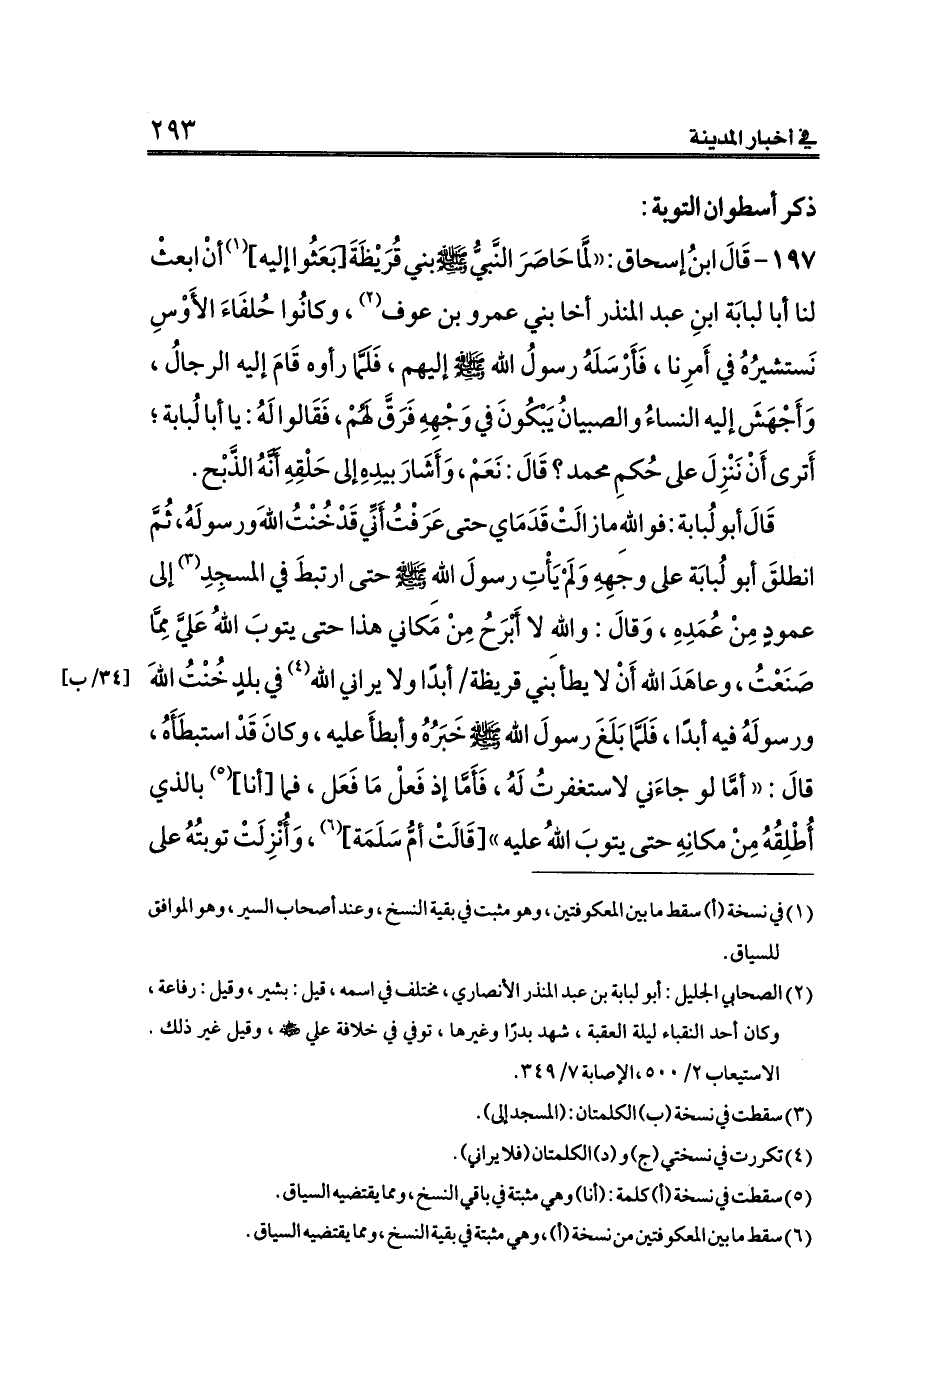 في أخبار المدينة
٢٩٣
ذكر أسطوان التوبة :
١٩٧ – قَالَ ابنُ إسحاق : «لَمَّا حَاصَرَ النَّبيُّ ﷺ بني قُرَيْظَةَ [بَعَثُوا إليه](١) أنْ ابعثْ
لنا أبا لبابَة ابنِ عبد المنذر أخا بني عمرو بن عوف(٢) ، وكانُوا حُلفَاءَ الأَوْسِ
نَستشيرُهُ في أَمرِنا ، فَأَرْسَلَهُ رسولُ الله ﷺ إليهم ، فَلَمَّا رأوه قَامَ إليه الرجالُ ،
وَأَجْهَشَ إليه النساءُ والصبيانُ يَبْكُونَ في وَجْهِهِ فَرَقَّ لَهُمْ ، فَقَالوا لَهُ : يا أبا لُبابة ؛
أترى أنْ نَنْزِلَ على حُكمِ محمد ؟ قَالَ : نَعَمْ ، وَأَشَارَ بيدِهِ إلى حَلْقِهِ أَنَّهُ الذَّبْح .
قَالَ أبو لُبابة : فو الله ما زالَتْ قَدَمَاي حتى عَرَفْتُ أَنِّي قَدْ خُنْتُ اللهَ ورسولَهُ ، ثُمَّ
انطلقَ أبو لُبَابَة على وجهِهِ وَلَمْ يَأْتِ رسولَ الله ﷺ حتى ارتبطَ في المسجِدِ(٣) إلى
عمودٍ مِنْ عُمَدِهِ ، وَقَالَ : والله لا أَبْرَحُ مِنْ مَكاني هذا حتى يتوبَ اللهُ عَلَيَّ مِمَّا
صَنَعْتُ ، وعاهَدَ الله أَنْ لا يطأ بني قريظة/ أبدًا ولا يراني الله(٤) في بلدٍ خُنْتُ اللهَ [٣٤/ ب]
ورسولَهُ فيه أبدًا ، فَلَمَّا بَلَغَ رسولَ الله ﷺ خَبَرُهُ وأبطأَ عليه ، وكانَ قَدْ استبطَأَهُ ،
قالَ : « أمَّا لو جاءَني لاستغفرتُ لَهُ ، فَأَمَّا إذ فَعلْ مَا فَعَل ، فما [أنا](٥) بالذي
أُطْلِقُهُ مِنْ مكانِهِ حتى يتوبَ اللهُ عليه » [قَالَتْ أمُّ سَلَمَة](٦) ، وَأُنْزِلَتْ توبتُهُ على
(١) في نسخة (أ) سقط ما بين المعكوفتين ، وهو مثبت في بقية النسخ ، وعند أصحاب السير ، وهو الموافق
للسياق .
(٢) الصحابي الجليل : أبو لبابة بن عبد المنذر الأنصاري ، مختلف في اسمه ، قيل : بشير ، وقيل : رفاعة ،
وكان أحد النقباء ليلة العقبة ، شهد بدرًا وغيرها ، توفي في خلافة علي ﷺ ، وقيل غير ذلك .
الاستيعاب ٢/ ٥٠٠ ، الإصابة ٧/ ٣٤٩ .
(٣) سقطت في نسخة (ب) الكلمتان : (المسجد إلى) .
(٤) تكررت في نسختي (ج) و (د) الكلمتان (فلا يراني) .
(٥) سقطت في نسخة (أ) كلمة : (أنا) وهي مثبتة في باقي النسخ ، ومما يقتضيه السياق .
(٦) سقط ما بين المعكوفتين من نسخة (أ) ، وهي مثبتة في بقية النسخ ، ومما يقتضيه السياق .